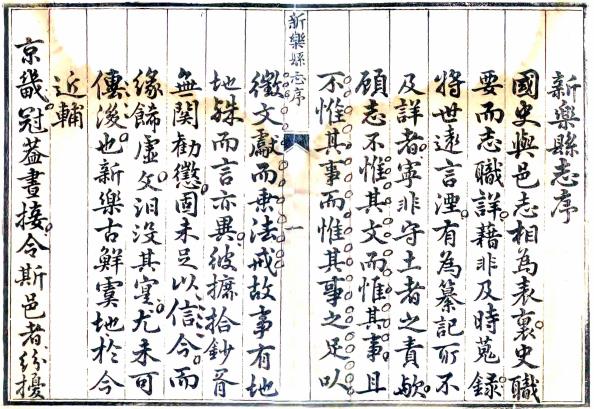 新樂縣志序
國史與邑志相為表裏史職
要而志職詳藉非及時蒐録
將世遠言湮有為纂記所不
及詳者寧非守土者之責歟
顧志不惟其文而惟其事且
不惟其事而惟其事之足以
新樂縣志序
一
徵文獻而垂法戒故事有地
地殊而言亦異彼摭拾鈔胥
無関勸懲固未足以信今而
緣飾虛文汨没其寔尤未可
傳後也新樂古鮮虞地於今
近輔
京畿冠葢晝接令斯邑者紛擾